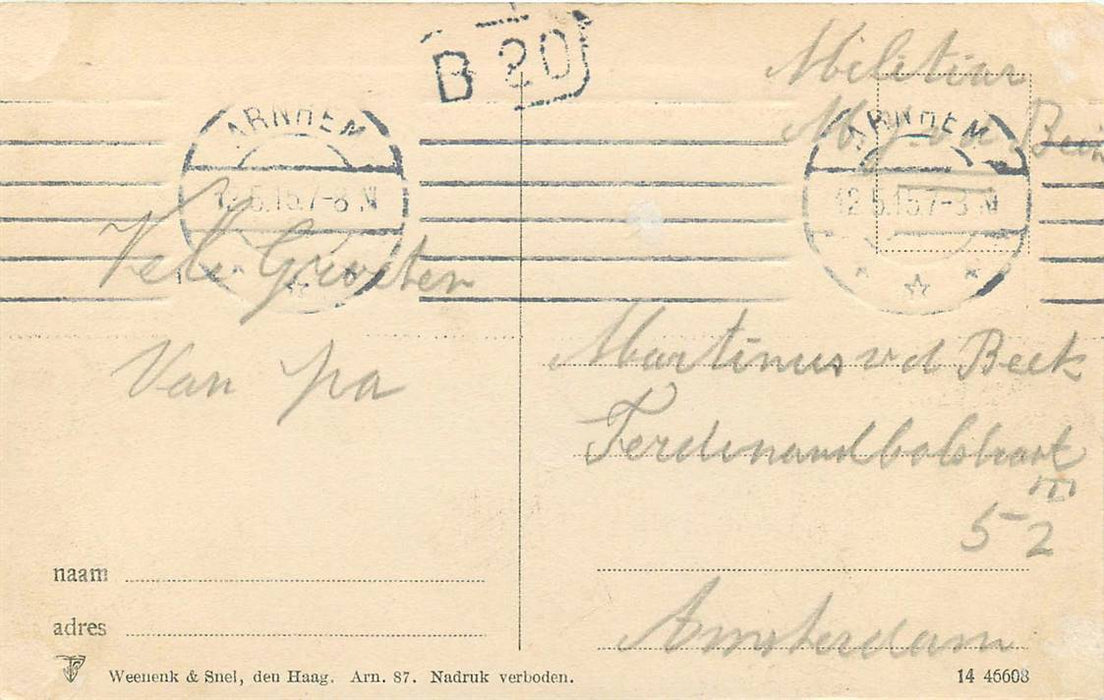 B 20
Miletiar
M v d Beek
ARNHEM
12.5.15.7-8 N
ARNHEM
12.5.15.7-8 N
Vele Groeten
Van pa
Martinus v d Beek
Ferdinandbolstraat
52 III
Amsterdam
naam
adres
Weenenk & Snel, den Haag. Arn. 87. Nadruk verboden.
14 46608